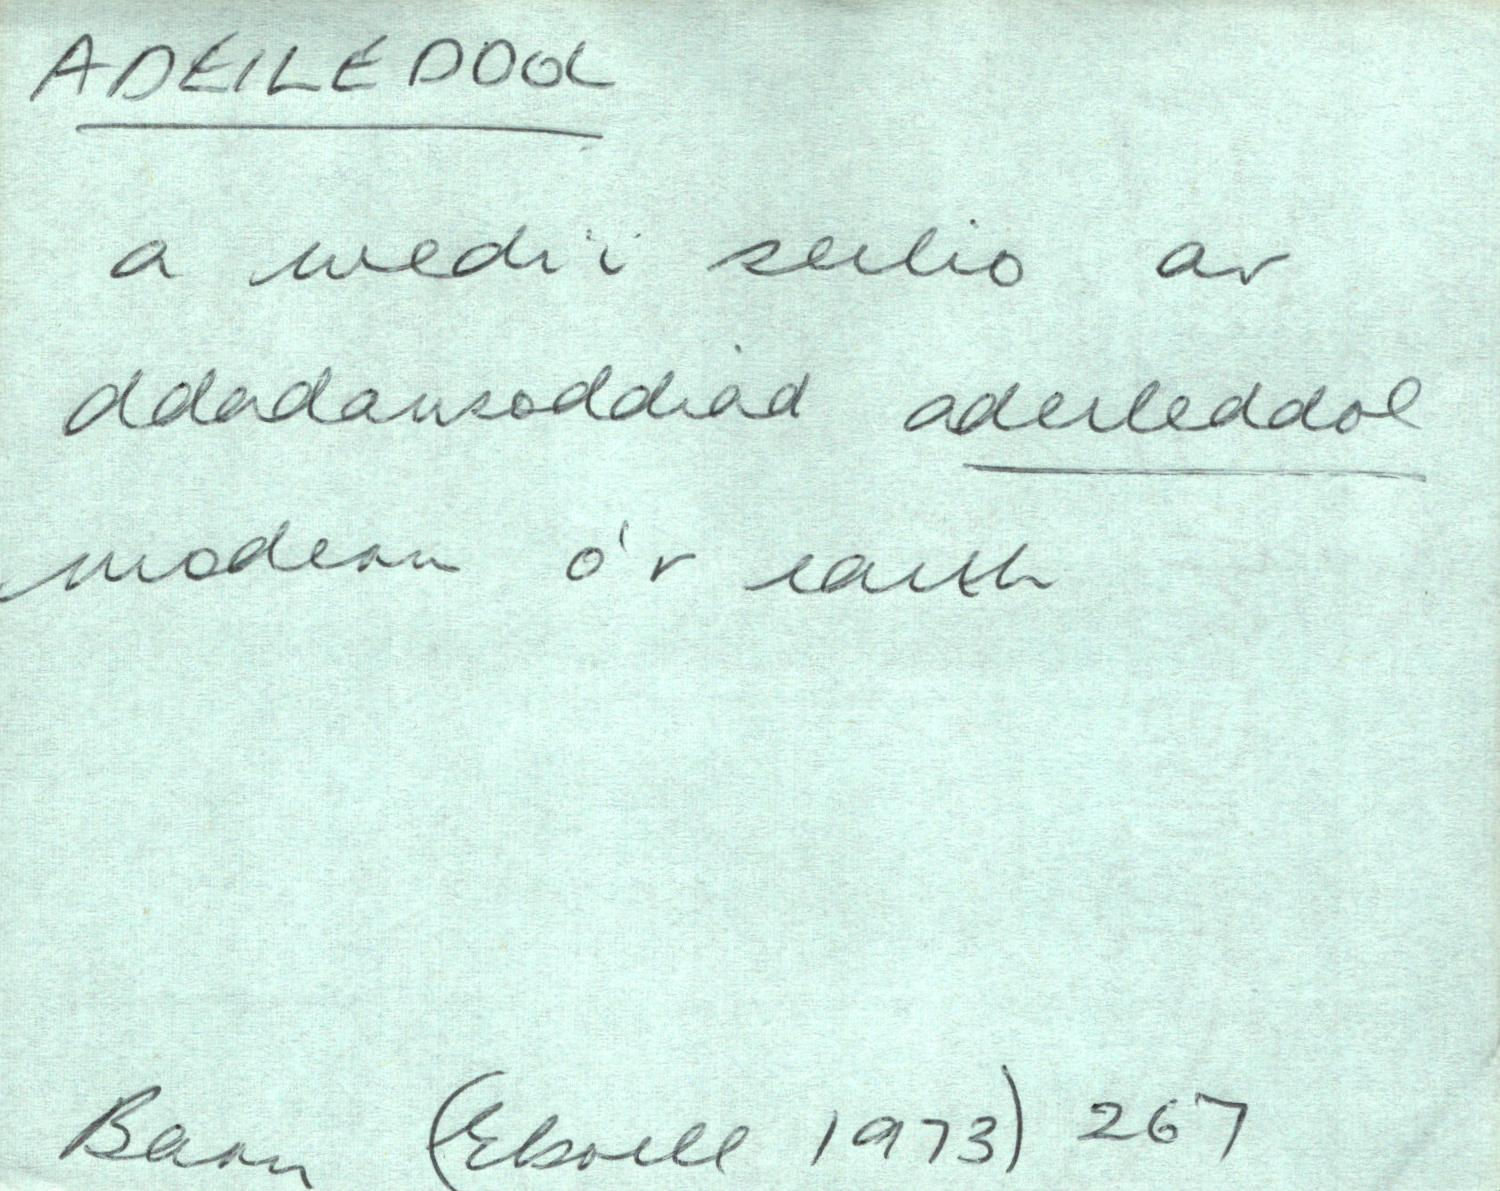 ADEILEDDOL
a wedi'i seilio ar
ddadansoddiad adeileddol
modern o'r iaith
Barn (Ebrill 1973) 267